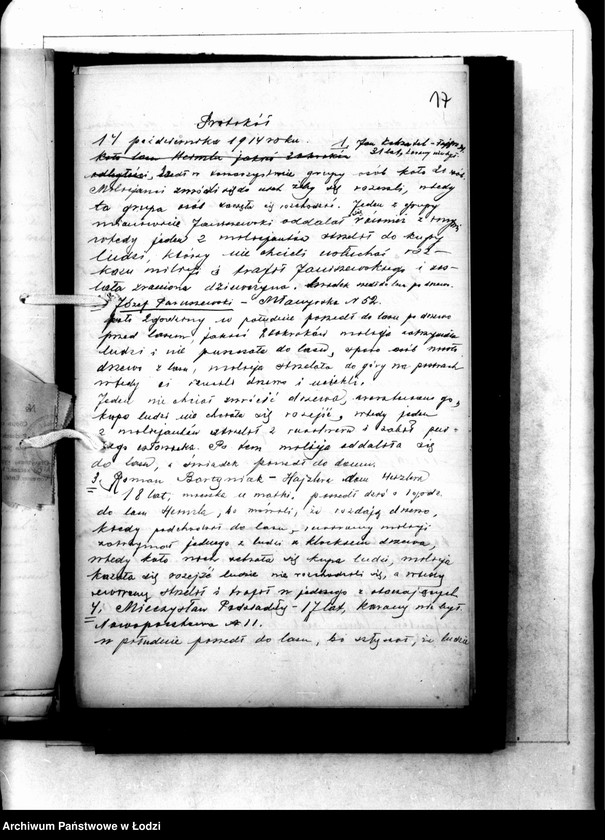 17
Protokół
14 października 1914 roku. 1, Jan
21 lat,
koło lasu Heinzla jakieś 200 kroków
odległości, szedł w towarzystwie grupy osób koło 20 osób.
Milicjanci zwrócili się do osób żeby się rozeszli, wtedy
ta grupa osób zaczęła się rozchodzić. Jeden z grupy
mianowicie Janiszewski oddalał się również z
wtedy jeden z milicjantów strzelił do kupy
ludzi, którzy nie chcieli usłuchać roz-
kazu milicji i trafił Janiszewskiego i zos-
tała zraniona dziewczyna. Świadek nosił z lasu drzewo.
2 Józef Januszewski - N 52.
koło 2 godziny w południe poszedł do lasu po drzewo
przed lasem, jakieś 200 kroków milicja zatrzymała
ludzi i nie puszczała do lasu, sporo osób niosło
drzewo z lasu, milicja strzelała do góry na postrach
wtedy ci rzucili drzewo i uciekli.
Jeden nie chciał rzucić drzewa, aresztowano go,
kupa ludzi nie chciała się rozejść, wtedy jeden
z milicjantów strzelił z rewolweru i zabił pew-
nego człowieka. Po tem milicja oddaliła się
do lasu, a świadek poszedł do domu.
3, Roman Bartyniak - Hajzlera dom Heszlera
18 lat, mieszka u matki, poszedł dziś o 1 godz.
do lasu Heinzla, bo mówili, że rozdają drzewo,
kiedy podchodził do lasu, milicji
zatrzymał jednego z ludzi z klockiem drzewa,
wtedy koło niego zebrała się kupa ludzi, milicja
kazała się rozejść ludzie nie rozchodzili się, a wtedy
strzelił i trafił w jednego z stojących
4, Mieczysław Podsiadły - 17 lat, karany nie był
N 11.
w południe poszedł do lasu, bo słyszał, że ludzie
Archiwum Państwowe w Łodzi